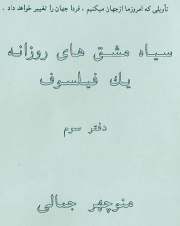 تأویلی که امروزما ازجهان میکنیم ، فردا جهان را تغییر خواهد داد .
سیاه مشق های روزانه
یك فیلسوف
دفتر سوم
منوچهر جمالی